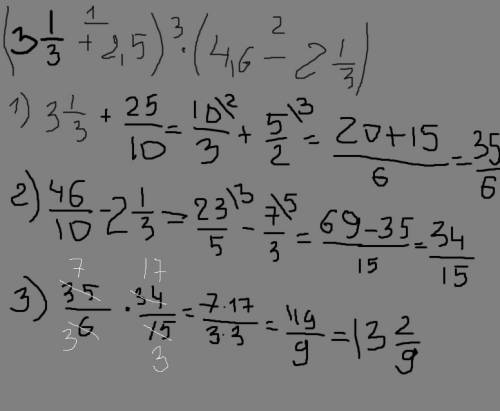 (3 1/3 +¹ 2,5) ·³ (4,6 −² 2 1/3)
1) 3 1/3 + 25/10 = 10\2/3 + 5\3/2 = 20+15/6 = 35/6
2) 46/10 - 2 1/3 = 23\3/5 - 7\5/3 = 69-35/15 = 34/15
3) 35/6 7 3 · 34/15 17 3 = 7·17/3·3 = 119/9 = 13 2/9